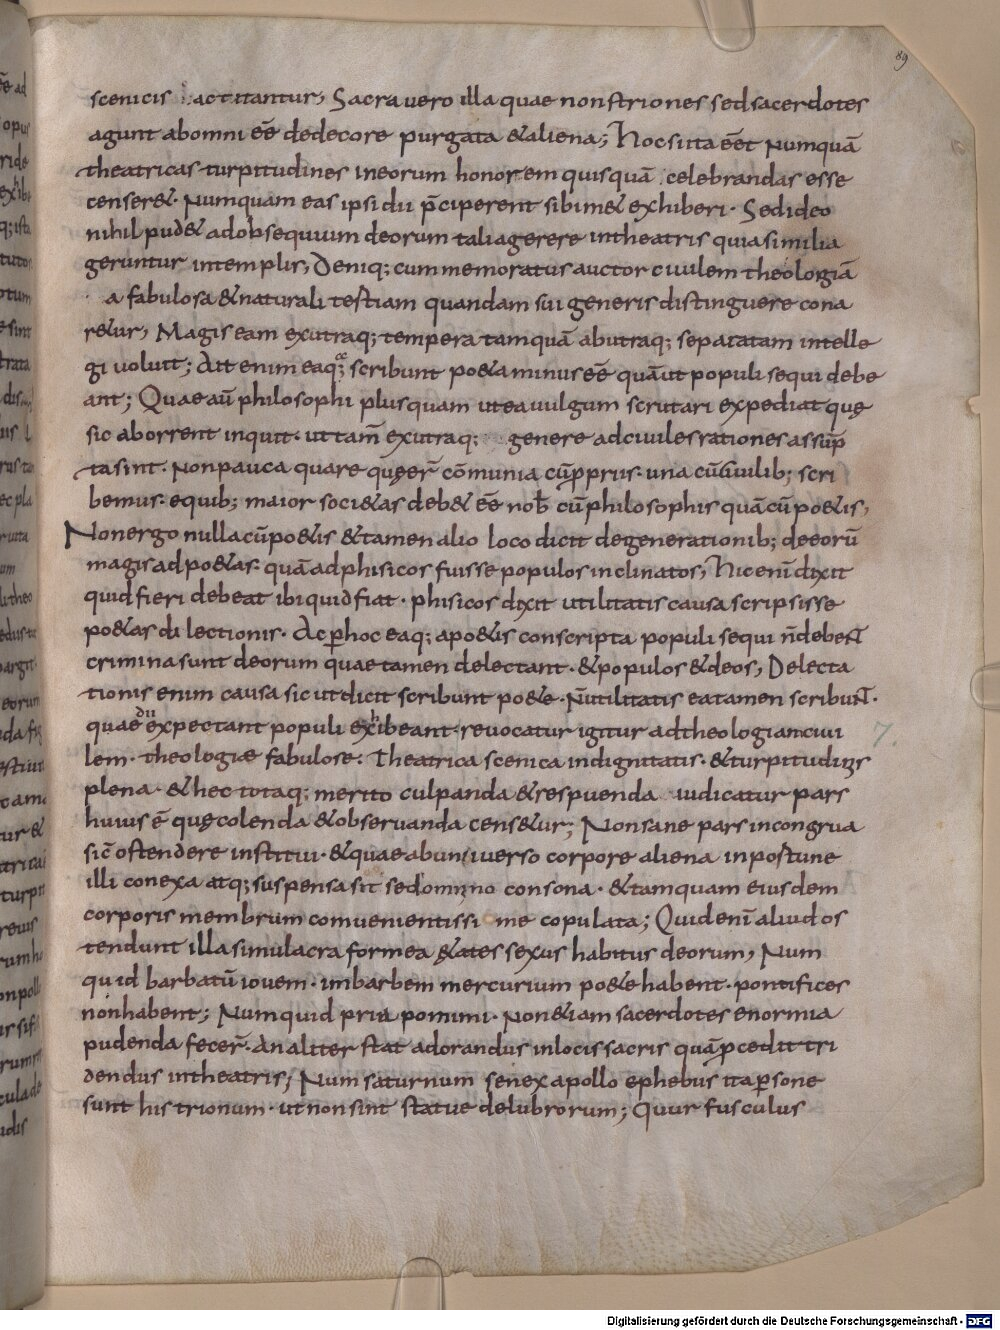 89
scenicis actitantur, Sacra vero illa quae non striones sed sacerdotes
agunt ab omni eē dedecore purgata & aliena; Hoc si ita eēt numquā
theatricas turpitudines in eorum honorem quisquā celebrandas esse
censer&. Numquam eas ipsi dii p̄ciperent sibim& exhiberi. Sed ideo
nihil pud& ad obsequium deorum talia gerere in theatris quia similia
geruntur in templis, Deniq; cum memoratus auctor civilem theologiā
a fabulosa & naturali testiam quandam sui generis distinguere cona
r&ur, Magis eam ex utraq; tempera tamquā ab utraq; separatam intelle
gi voluit; Ait enim ea quę scribunt po&a minus eē quā ut populi sequi debe
ant; Quae aū philosophi plus quam ut ea vulgum scrutari expediat quę
sic aborrent inquit. ut tam̄ ex utraq; genere ad civiles rationes assūp
ta sint. Non pauca quare quę er̄ cōmunia cū pprus. una cū civilib; scri
bemus. e quib; maior soci&as deb& eē nob̄ cū philosophis quā cū po&is,
Non ergo nulla cū po&is & tamen alio loco dicit de generationib; deorū
magis ad po&as quā ad phisicos fuisse populos inclinatos, Hic enī dixit
quid fieri debeat ibi quid fiat. phisicos dixit utilitatis causa scripsisse
po&as dilectionis. Ac p̄ hoc eaq; a po&is conscripta populi sequi n̄ debent
crimina sunt deorum quae tamen delectant. & populos & deos, Delecta
tionis enim causa sicut dicit scribunt po&e. N̄ utilitatis ea tamen scribunt.
quae dii expectant populi exhibeant. revocatur igitur ad theologiam civi
lem. theologiae fabulose. Theatrica scenica indignitatis. & turpitudinis
plena. & hec totaq; merito culpanda & respuenda iudicatur pars
huius ē quę colenda & observanda cens&ur; Non sane pars incongrua
sic̄ ostendere institui. & quae ab universo corpore aliena inpostune
illi conexa atq; suspensa sit sed omnino consona. & tamquam eiusdem
corporis membrum convenientissi me copulata; Quid enī aliud os
tendunt illa simulacra forme a&ates sexus habitus deorum, Num
quid barbatū iovem. imbarbem mercurium po&e habent. pontifices
non habent; Numquid pria po mimi. Non &iam sacerdotes enormia
pudenda fecer̄. An aliter stat adorandus in locis sacris quā p̄cedit tri
dendus in theatris; Num saturnum senex apollo ephebus ita p̄sone
sunt histrionum. ut non sint statue delubrorum; Quur fusculus
7.
Digitalisierung gefördert durch die Deutsche Forschungsgemeinschaft - DFG